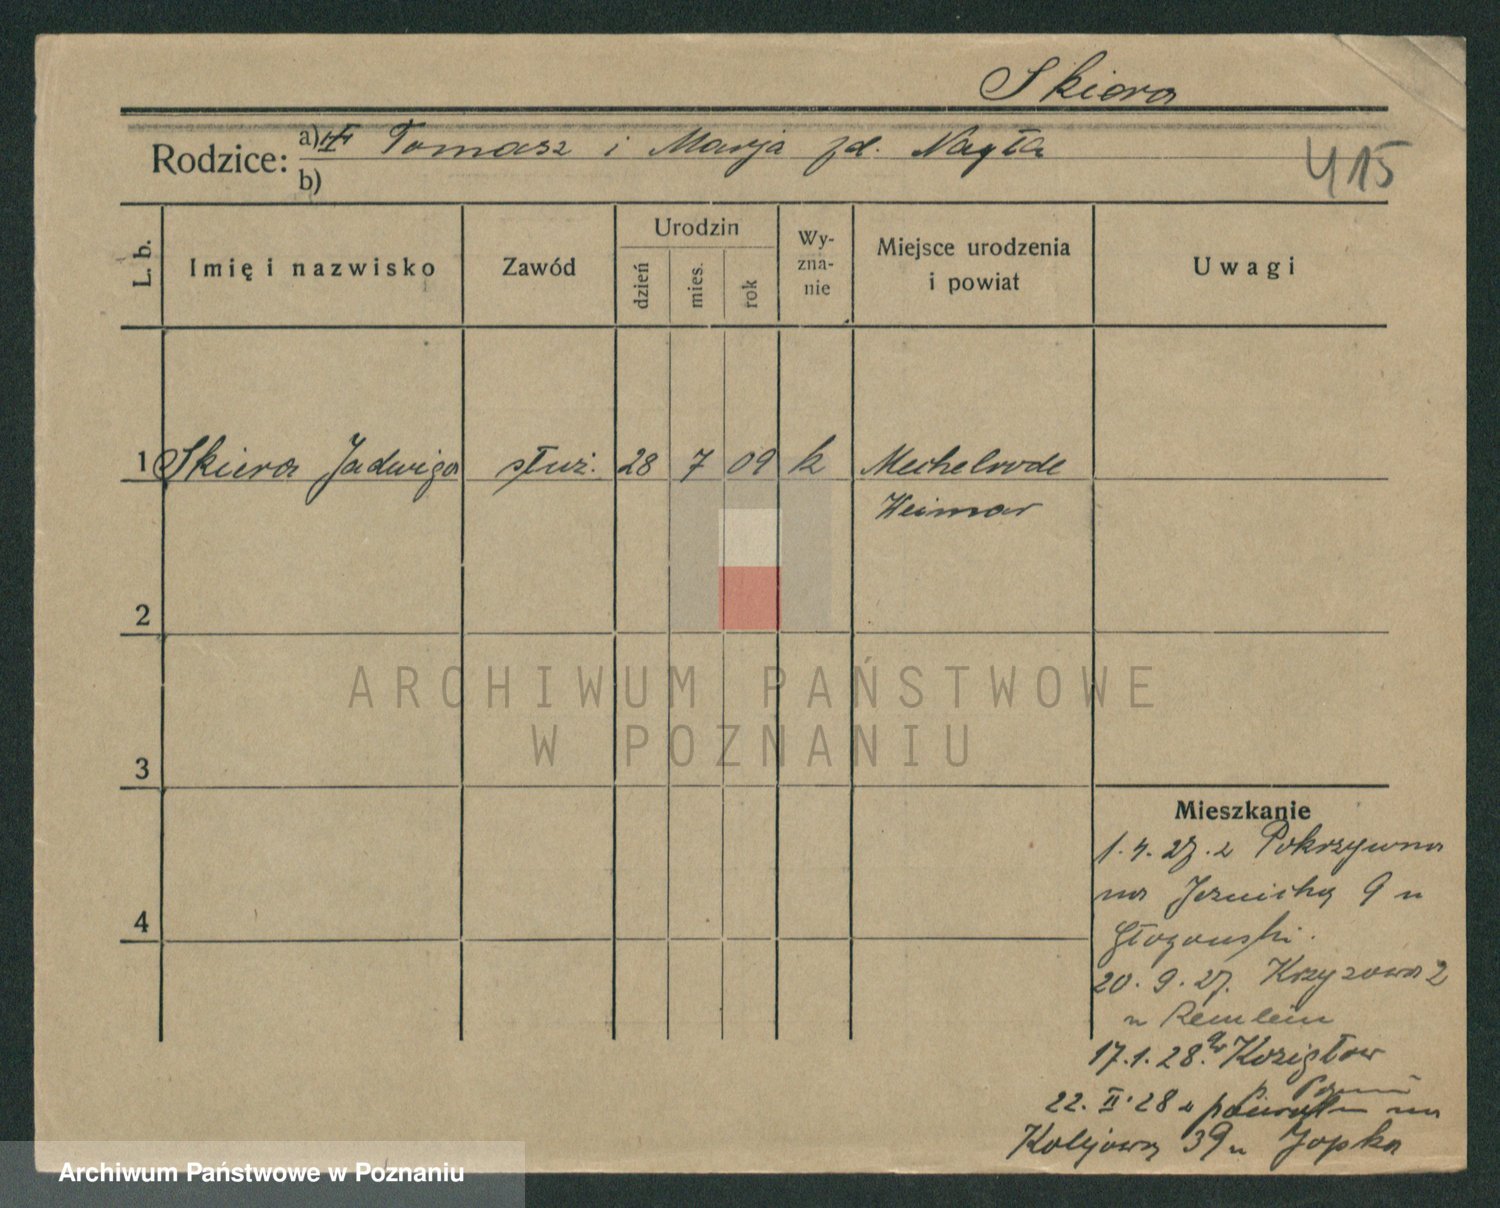 Skiera
Rodzice: a) Tomasz i Marja zd. Nagła
b)
415
L. b. Imię i nazwisko Zawód Urodzin dzień mies. rok Wyznanie Miejsce urodzenia i powiat Uwagi
1 Skiera Jadwiga służ. 28 7 09 k Mechelrode
Weimar
2
ARCHIWUM PAŃSTWOWE
W POZNANIU
3
4
Mieszkanie
1.4.27. z Pokrzywna
na 9 u
Głogowski.
20.9.27. Krzyżowa 2
u Remlein
17.1.28. Kozigłow
p. Pozn
22.II.28 z powrotem na
Kolejową 39 u Jopka
Archiwum Państwowe w Poznaniu